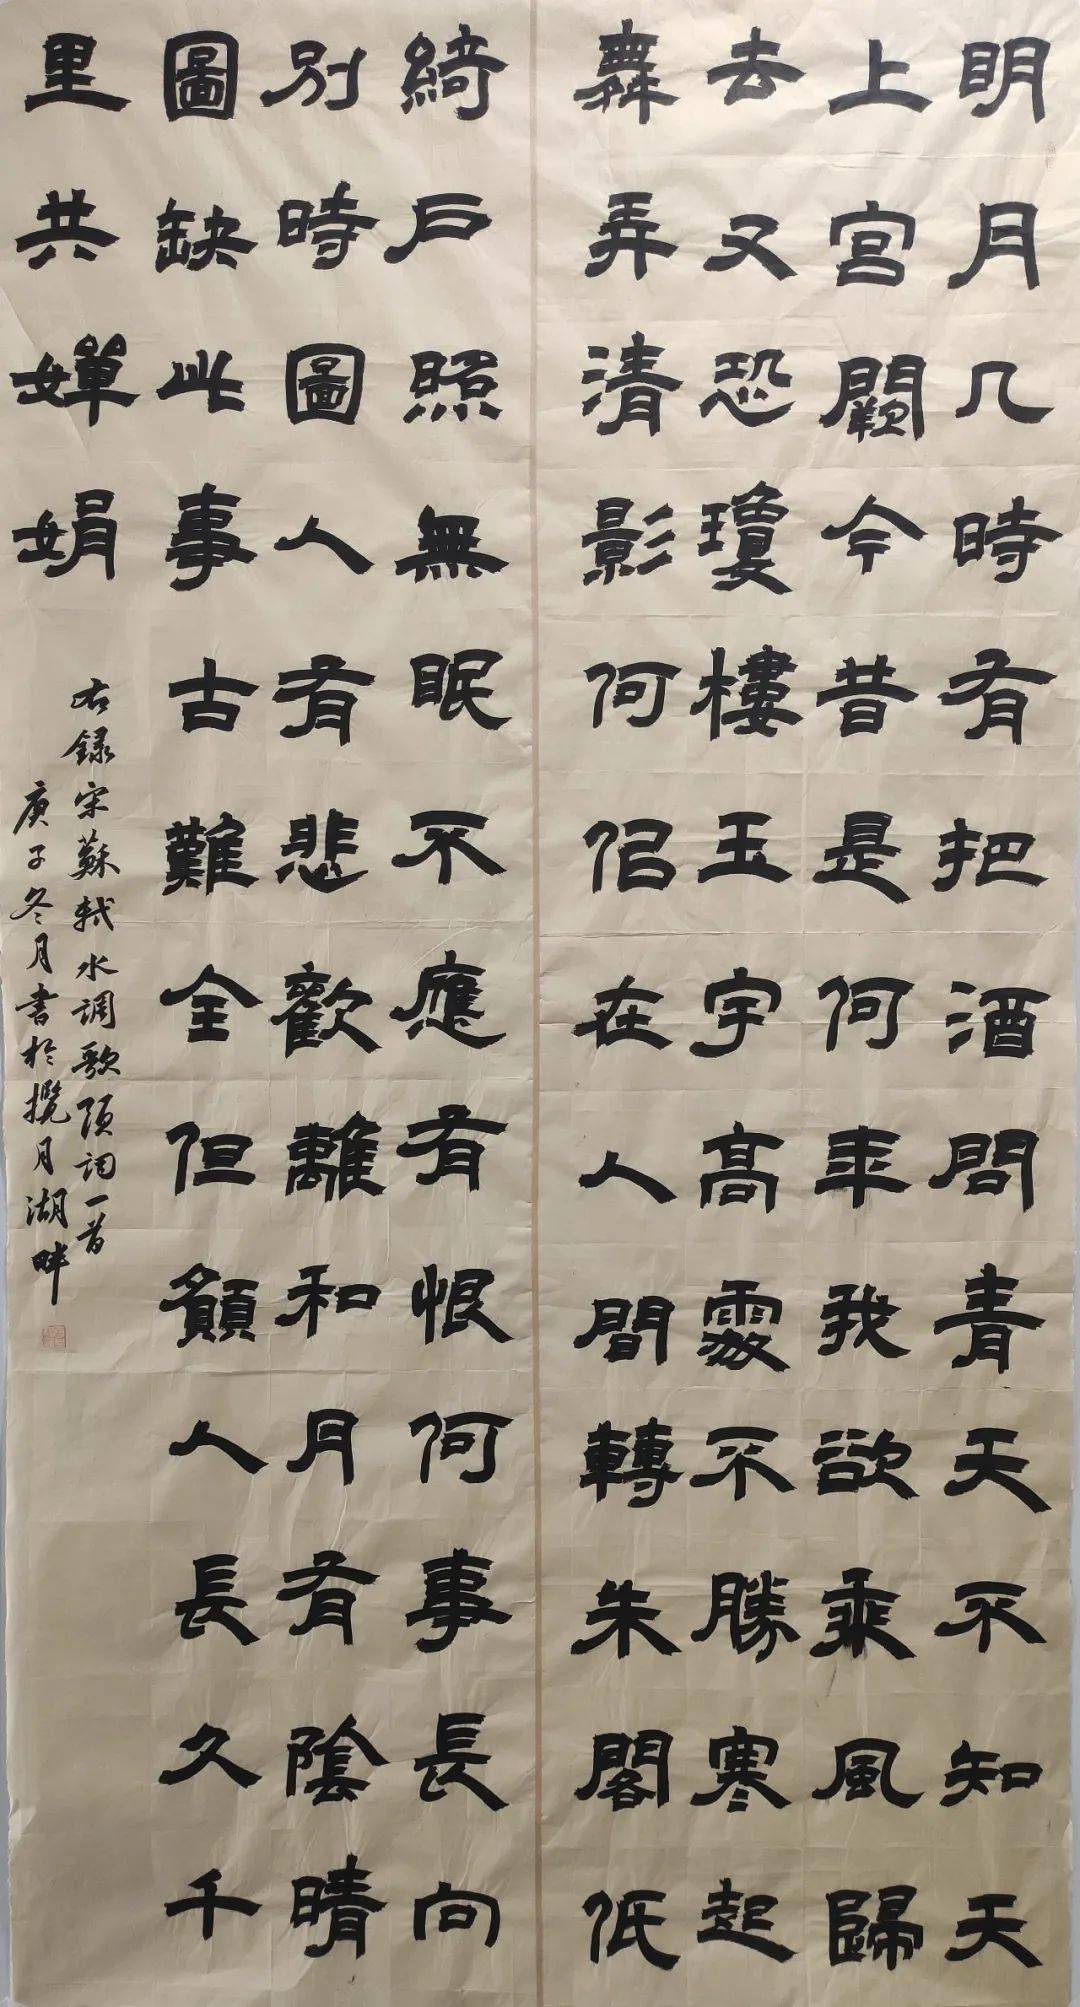 明月几時有把酒問青天不知天
上宮闕今昔是何年我欲乘風歸
去又恐瓊樓玉宇高處不勝寒起
舞弄清影何佀在人間轉朱閣低
綺戶照無眠不應有恨何事長向
別時圖人有悲歡離和月有陰晴
圖缺此事古難全但願人長久千
里共嬋娟
右録宋蘇軾水調歌頭詞一首
庚子冬月書於攬月湖畔